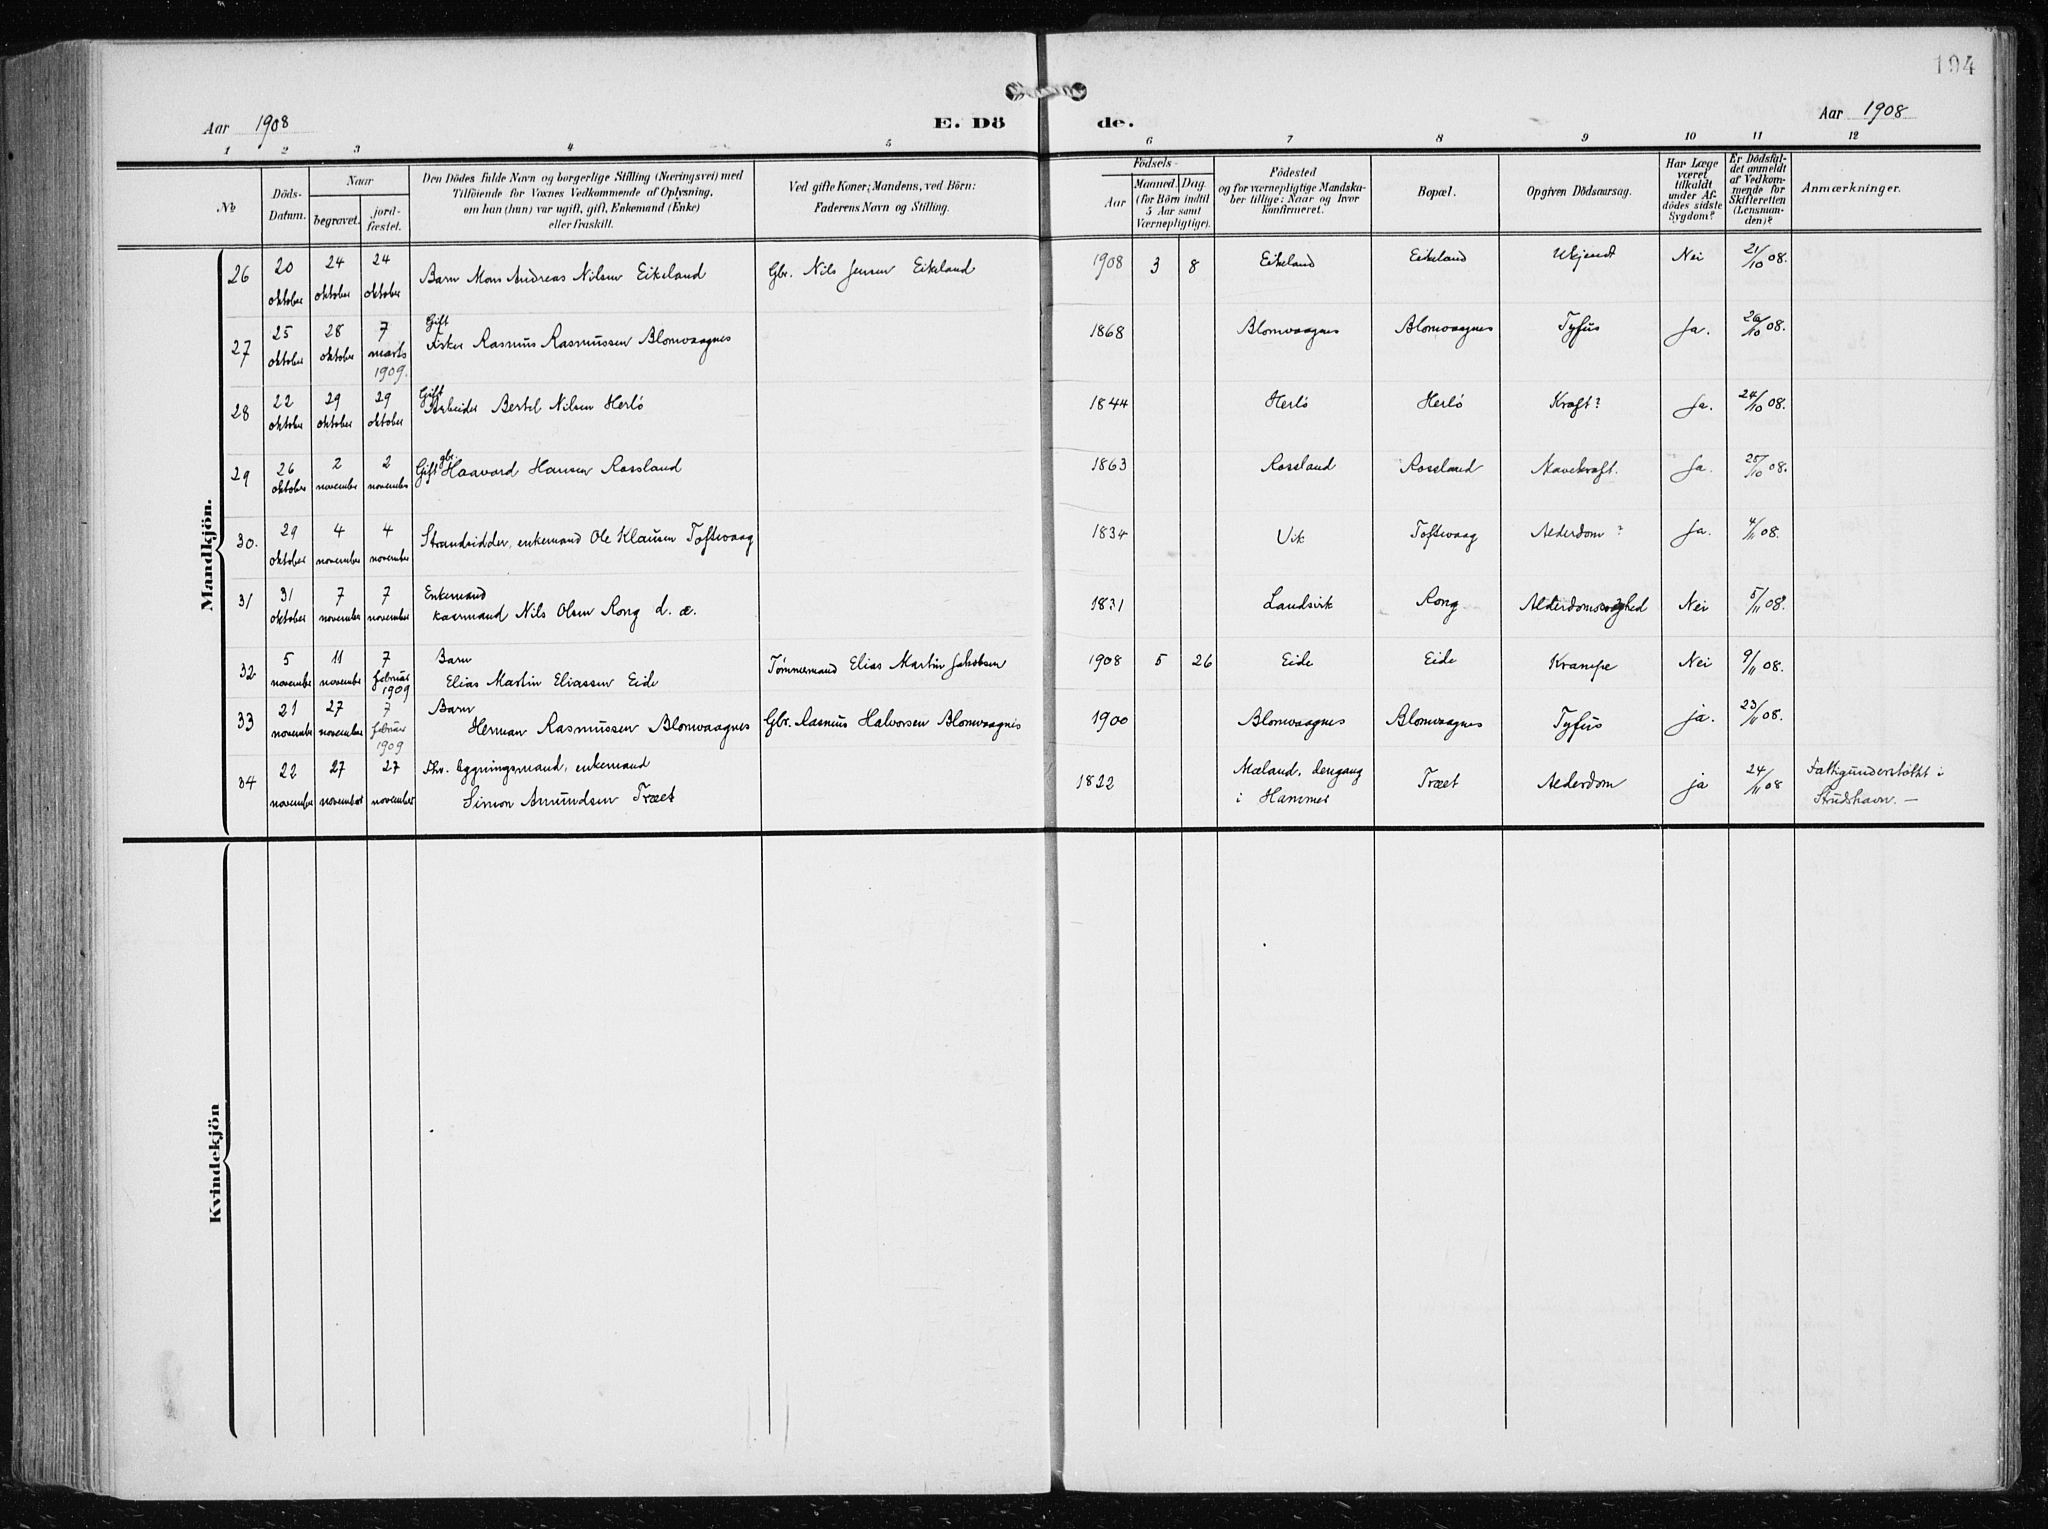 194
Aar 1908
E. Dö de.
Aar 1908
1 2 3 4 5 6 7 8 9 10 11 12
No
Döds-Datum.
Naar
begravet. jord-fæstet.
Den Dödes fulde Navn og borgerlige Stilling (Næringsvei) med
Tilföiende for Voxnes Vedkommende af Oplysning,
om han (hun) var ugift, gift, Enkemand (Enke)
eller fraskilt.
Ved gifte Koner; Mandens, ved Börn:
Faderens Navn og Stilling.
Födsels-
Aar
Maaned. Dag.
(for Börn indtil
5 Aar samt
Værnepligtige).
Födested
og for værnepligtige Mandska-
ber tillige: Naar og hvor
konfirmeret.
Bopæl.
Opgiven Dödsaarsag.
Har Læge
været
tilkaldt
under Af-
dödes sidste
Sygdom?
Er Dödsfal-
det anmeldt
af Vedkom-
mende for
Skifteretten
(Lensman-
den)?
Anmærkninger.
Mandkjön.
26 20 oktober 24 oktober 24 oktober Barn Mons Andreas Nilsen Eikeland Gbr. Nils Jensen Eikeland 1908 3 8 Eikeland Eikeland Ukjendt Nei 21/10 08.
27 25 oktober 28 oktober 7 marts 1909. Gift Fisker Rasmus Rasmussen Blomvaagnes 1868 Blomvaagnes Blomvaagnes Tyfus Ja. 26/10 08.
28 22 oktober 29 oktober 29 oktober Gift Arbeider Bertel Nilsen Herlö 1844 Herlö Herlö Kræft? Ja. 24/10 08.
29 26 oktober 2 november 2 november Gift gbr. Haavard Hansen Rossland 1863 Rossland Rossland Mavekræft. Ja. 28/10 08.
30. 29 oktober 4 november 4 november Strandsidder, enkemand Ole Klausen Toftevaag 1834 Vik Toftevaag Alderdom? Ja. 4/11 08.
31 31 oktober 7 november 7 november Enkemand kaarmand Nils Olsen Rong d. æ. 1831 Landsvik Rong Alderdomssvaghed Nei 5/11 08.
32 5 november 11 november 7 februar 1909 Barn Elias Martin Eliassen Eide Tømmermand Elias Martin Jakobsen 1908 5 26 Eide Eide Krampe Nei 9/11 08.
33 21 november 27 november 7 februar 1909 Barn Herman Rasmussen Blomvaagnes Gbr. Rasmus Halvorsen Blomvaagnes 1900 Blomvaagnes Blomvaagnes Tyfus ja. 23/11 08.
34 22 november 27 november 27 november Fhv. bygningsmand, enkemand Simon Amundsen Træet 1822 Mæland, dengang i Hammer Træet Alderdom ja 24/11 08 Fattigunderstøttet i Strudshavn. —
Kvindekjön